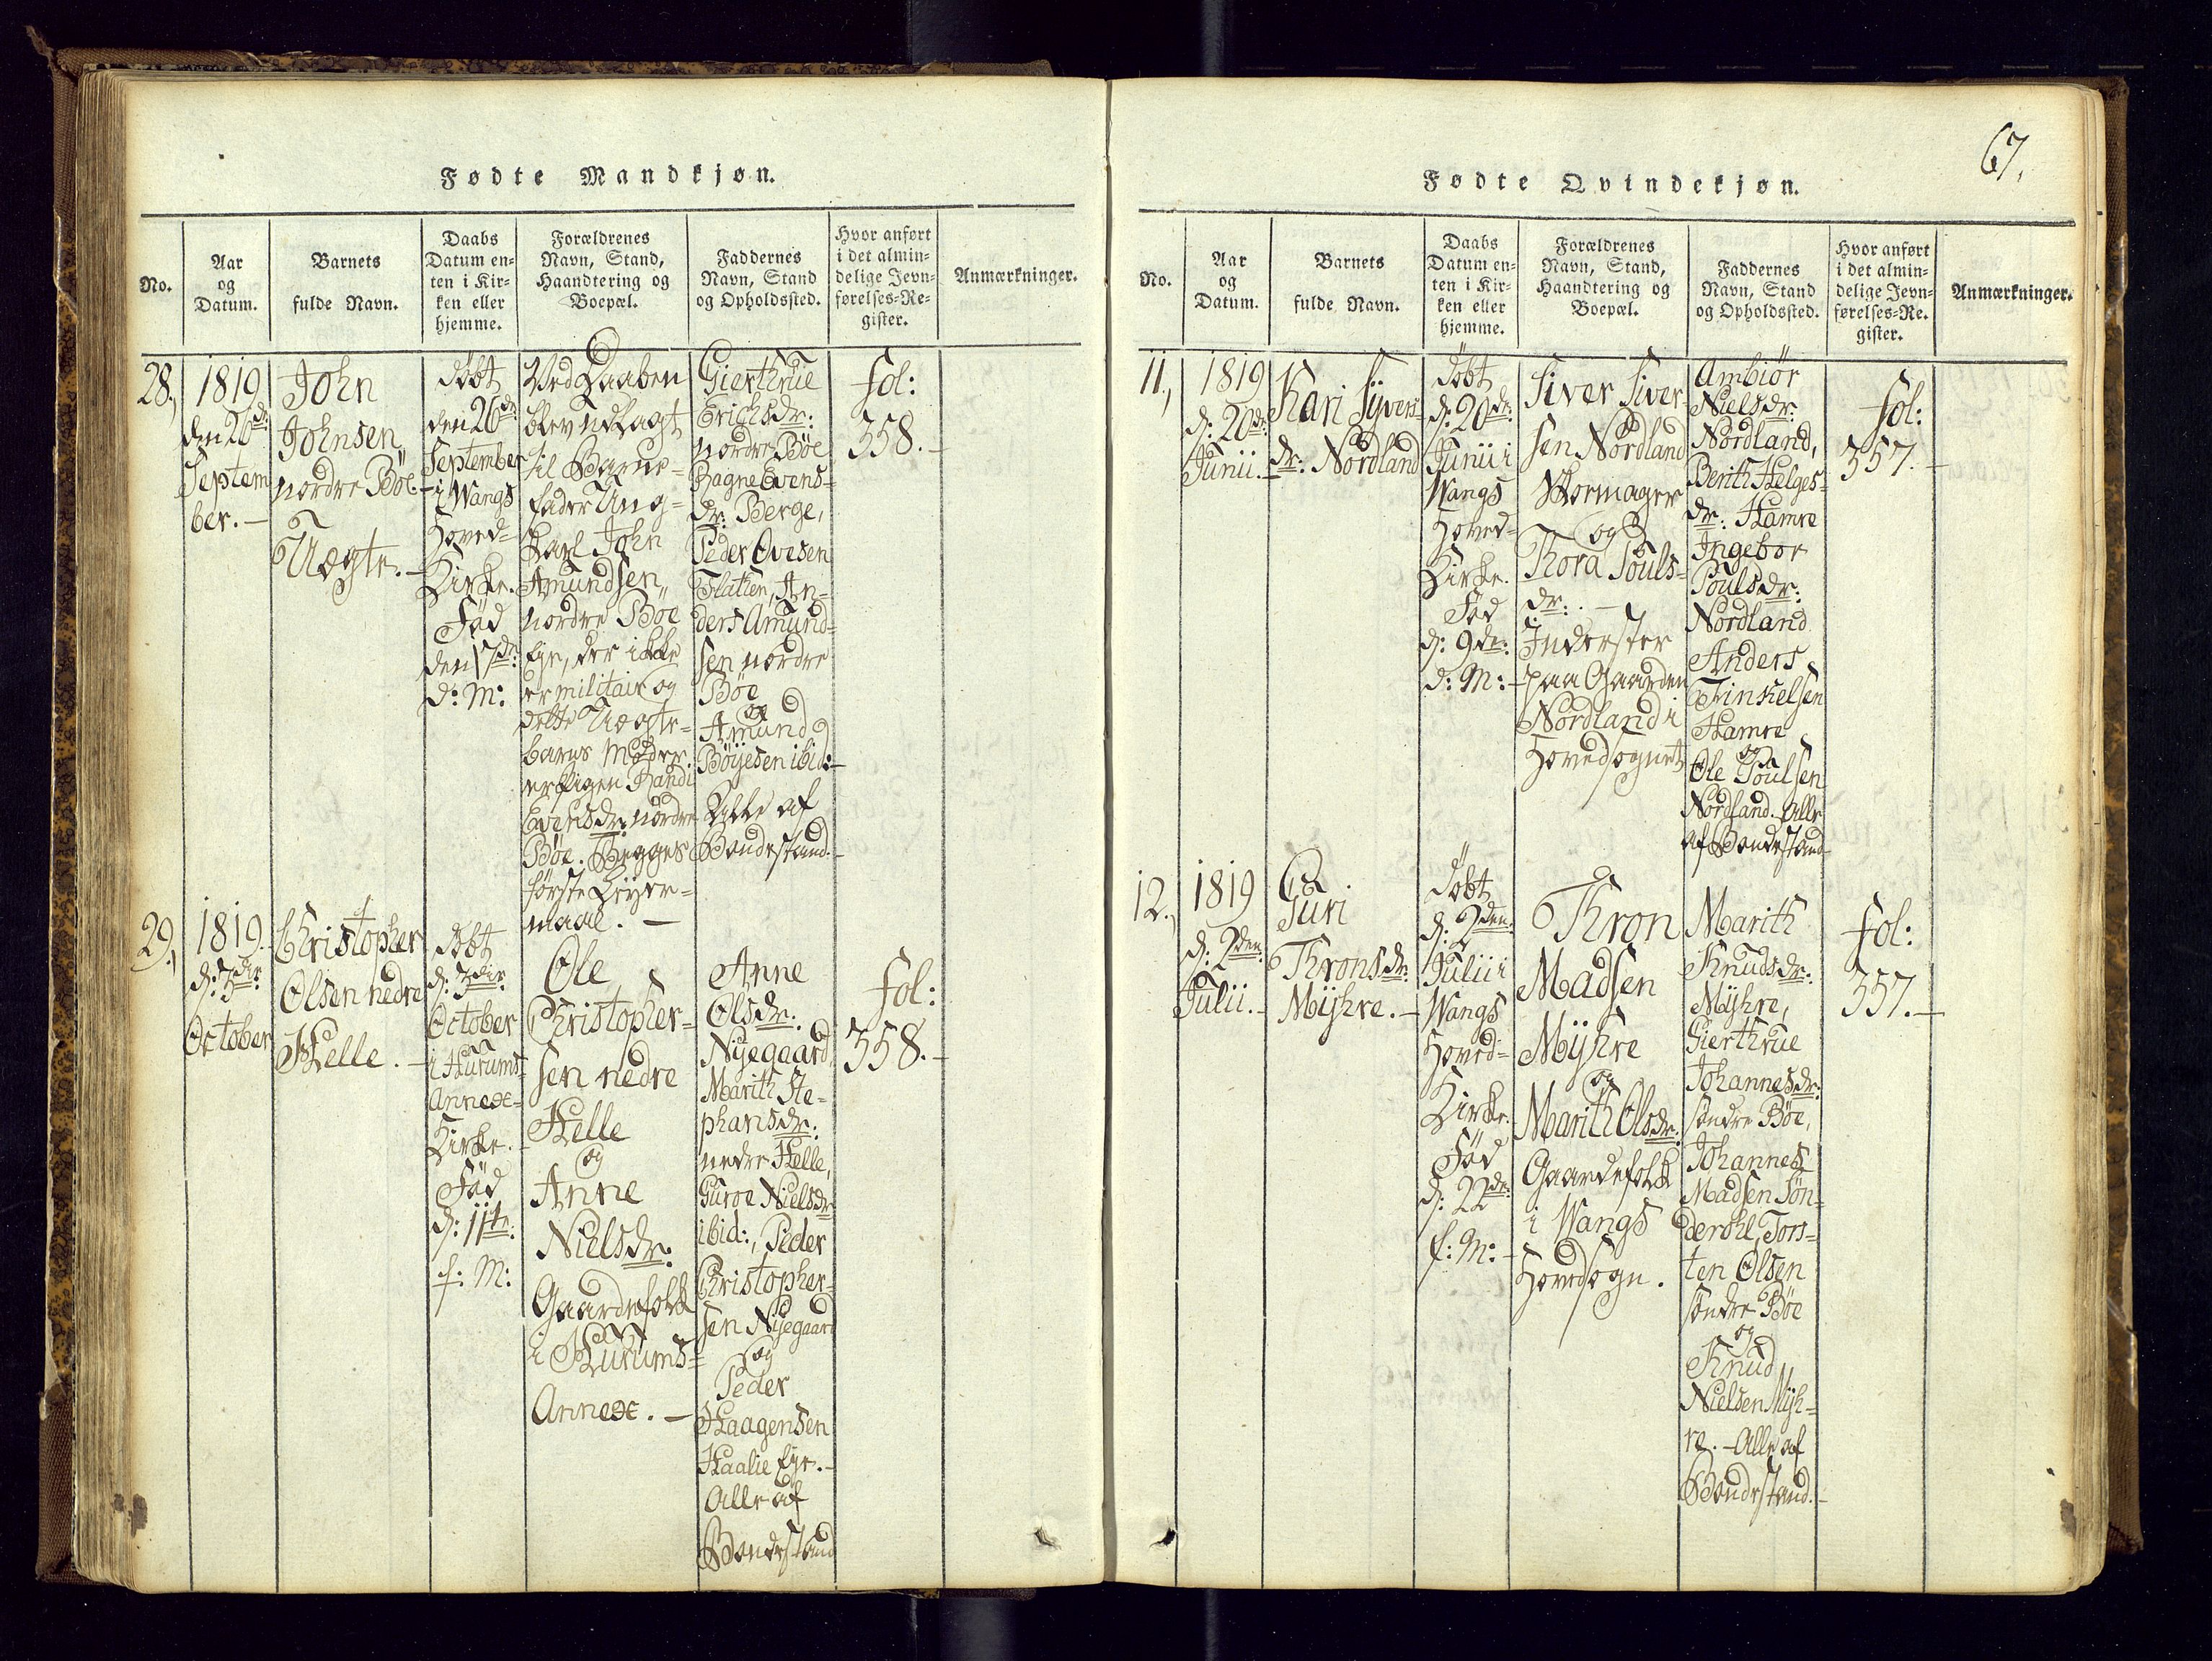 Fødte Mandkjøn.
No.
Aar
og
Datum.
Barnets
fulde Navn.
Daabs
Datum en-
ten i Kir-
ken eller
hjemme.
Forældrenes
Navn, Stand,
Haandtering og
Boepæl.
Faddernes
Navn, Stand
og Opholdssted.
Hvor anført
i det almin-
delige Jevn-
førelses-Re-
gister.
Anmærkninger.
28,
1819
den 26de:
Septem
ber. –
John
Johnsen
nordre Böe. –
Uægte. –
döbt
den 26de
September
i Wangs
Hoved=
Kirke.
Föd
den 17de:
d: M:
Ved Daaben
blev udlagt
til Barne=
fader Ung=
karl John
Amundsen
nordre Böe
Eje, der ikke
er militair og
dette Uægte=
barns Moder
er Pigen Randi
Evensdr: nordre
Böe. Begges
første Leyer=
maal. –
Gierthrue
Erichsdr:
nordre Böe
Ragne Evens=
dr: Berge,
Peder Ovesen
Flatien, An=
ders Amund=
sen nordre
Böe
og
Amund
Böyesen ibid: –
Alle af
Bondestand. –
fol:
358. –
29,
1819.
d: 3die:
October
Christopher
Olsen nedre
Helle. –
döbt
d: 3die:
October
i Hurums=
Annex=
Kirke.
Föd
d: 11te:
f: M:
Ole
Christopher=
sen nedre
Helle
og
Anne
Nielsdr:
Gaardefolk
i Hurums=
Annex. –
Anne
Olsdr:
Nyegaard,
Marith Ste=
phansdr:
nedre Helle,
Guroe Nielsdr:
ibid:, Peder
Christopher=
sen Nyegaard
og
Peder
Haagensen
Haalie Eje. –
Alle af
Bondestand
fol:
358. –
67.
Fødte Qvindekjøn.
No.
Aar
og
Datum.
Barnets
fulde Navn.
Daabs
Datum en-
ten i Kir-
ken eller
hjemme.
Forældrenes
Navn, Stand,
Haandtering og
Boepæl.
Faddernes
Navn, Stand
og Opholdssted.
Hvor anført
i det almin-
delige Jevn-
førelses-Re-
gister.
Anmærkninger.
11,
1819
d: 20de:
Junii. –
Kari Syvers=
dr: Nordland
döbt
d: 20de:
Junii i
Wangs
Hoved=
Kirke.
Föd
d: 9de:
d: M: –
Siver Siver=
sen Nordland
Skomager
og
Thora Pouls=
dr: . –
Inderster
paa Gaarden
Nordland i
Hovedsognet
Ambiör
Nielsdr:
Nordland,
Berith Helges=
dr: Hamre
Ingebor
Poulsdr:
Nordland
Anders
Finkelsen
Hamre
og
Ole Poulsen
Nordland. Alle
af Bondestand –
fol:
357. –
12,
1819
d: 2den:
Julii. –
Guri
Thronsdr:
Myhre. –
döbt
d: 2den:
Julii i
Wangs
Hoved=
Kirke.
Föd
d: 22de:
f: M: –
Thron
Madsen
Myhre
og
Marith Olsdr:
Gaardefolk
i Wangs
Hovedsogn.
Marith
Knudsdr:
Myhre,
Gierthrue
Johannesdr:
söndre Böe,
Johannes
Madsen Sön=
Tors=
ten Olsen
söndre Böe
og
Knud
Nielsen Myh=
re. – Alle af
Bondestand. –
fol:
357. –